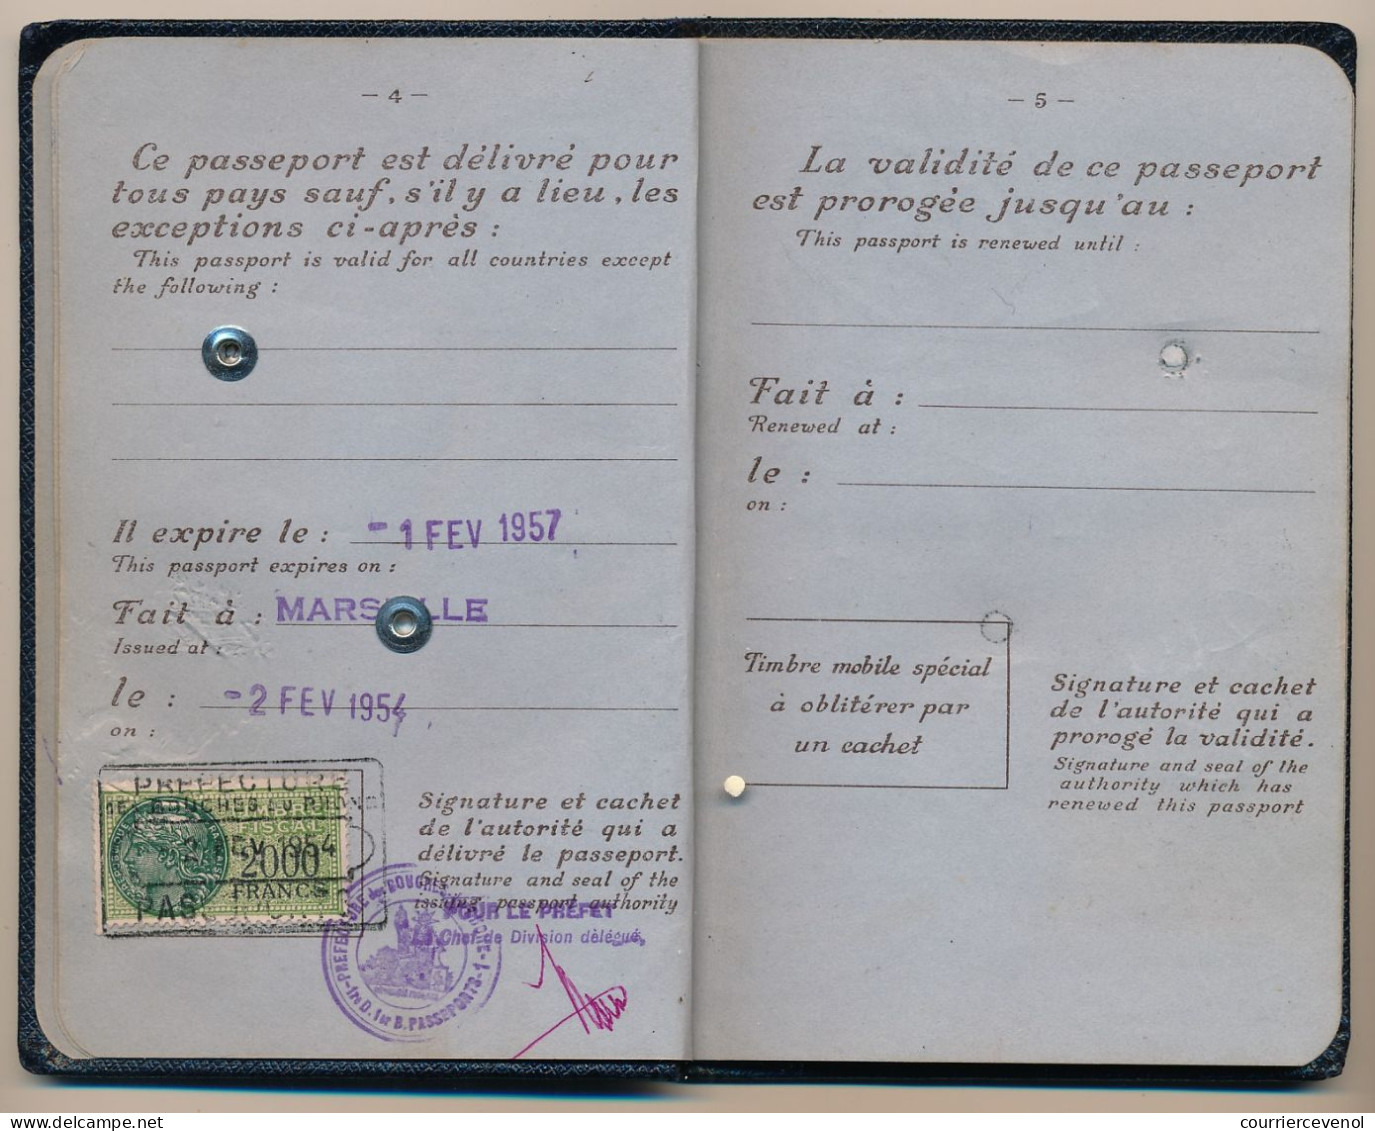 — 4 —
Ce passeport est délivré pour
tous pays sauf, s'il y a lieu, les
exceptions ci-après :
This passport is valid for all countries except
the following :
Il expire le : - 1 FEV 1957
This passport expires on :
Fait à : MARSEILLE
Issued at :
le : - 2 FEV 1954
on :
PREFECTURE
BOUCHES-DU-RHONE
FISCAL
1954
2000
FRANCS
Signature et cachet
de l'autorité qui a
délivré le passeport.
Signature and seal of the
issuing passport authority
POUR LE PRÉFET
Le Chef de Division délégué,
PREFECTURE des BOUCHES
D. 1er B. PASSEPORTS - 1 -
— 5 —
La validité de ce passeport
est prorogée jusqu'au :
This passport is renewed until :
Fait à :
Renewed at :
le :
on :
Timbre mobile spécial
à oblitérer par
un cachet
Signature et cachet
de l'autorité qui a
prorogé la validité.
Signature and seal of the
authority which has
renewed this passport
courriercevenol